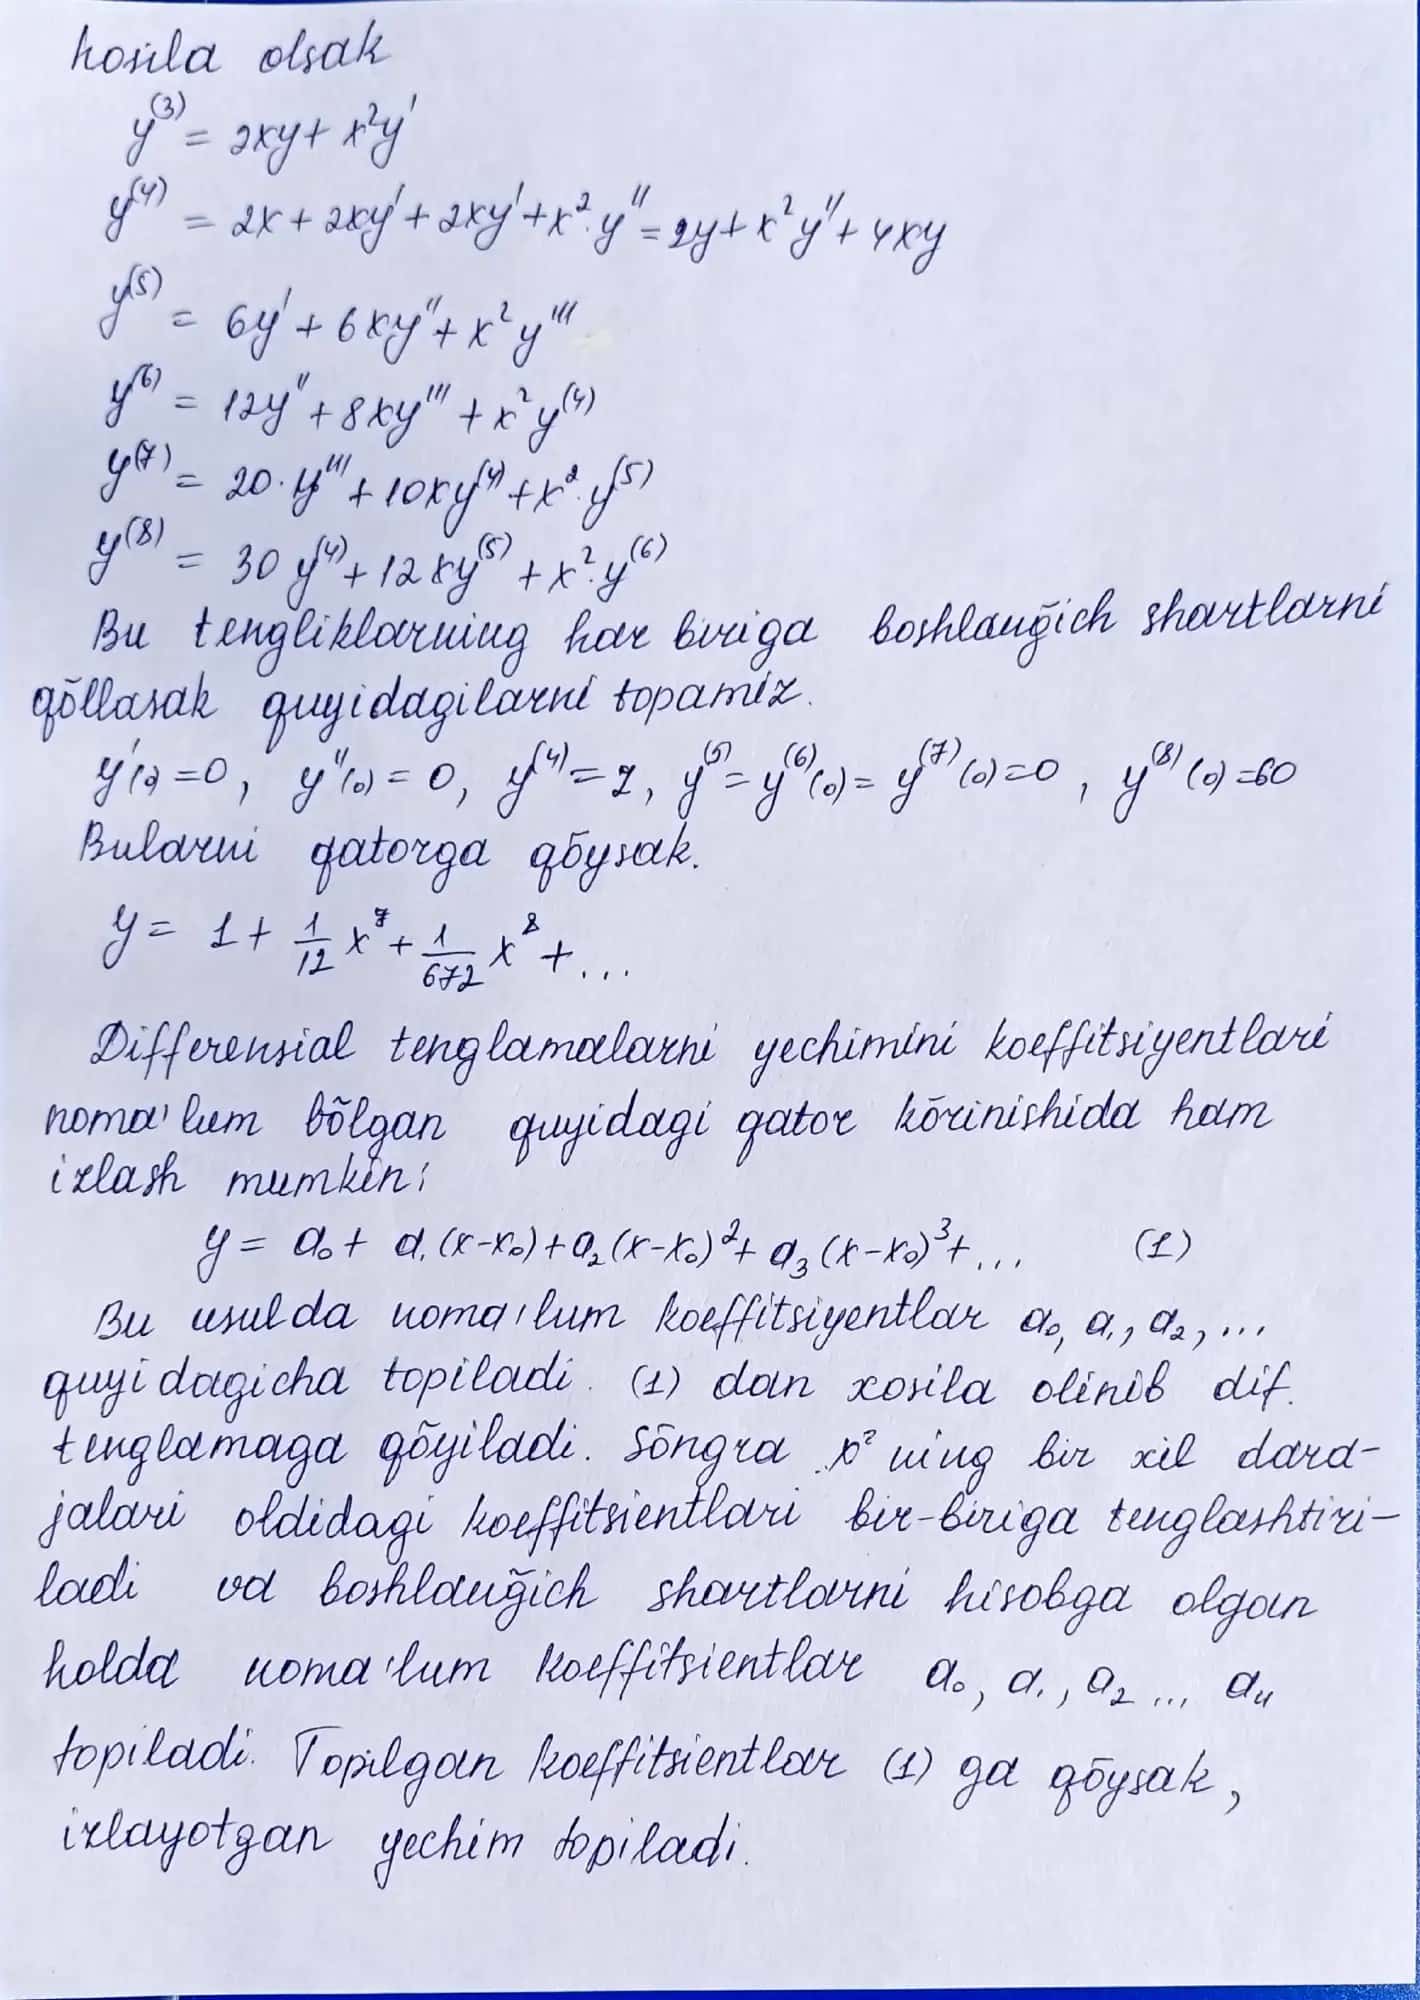 hosila olsak
y⁽³⁾ = 2xy + x²y'
y⁽⁴⁾ = 2x + 2xy' + 2xy' + x²·y'' = 2y + x²y'' + 4xy
y⁽⁵⁾ = 6y' + 6xy'' + x²y'''
y⁽⁶⁾ = 12y'' + 8xy''' + x²y⁽⁴⁾
y⁽⁷⁾ = 20·y''' + 10xy⁽⁴⁾ + x²·y⁽⁵⁾
y⁽⁸⁾ = 30y⁽⁴⁾ + 12xy⁽⁵⁾ + x²·y⁽⁶⁾
Bu tengliklarning har biriga boshlang̃ich shartlarni
qõllasak quyidagilarni topamiz.
y'(0) = 0, y''(0) = 0, y⁽⁴⁾ = 2, y⁽⁵⁾ = y⁽⁶⁾(0) = y⁽⁷⁾(0) = 0, y⁽⁸⁾(0) = 60
Bularni qatorga qõysak.
y = 1 + 1/12 x⁷ + 1/672 x⁸ + ...
Differensial tenglamalarni yechimini koeffitsiyentlari
noma'lum bõlgan quyidagi qator kõrinishida ham
izlash mumkin:
y = a₀ + a₁(x-x₀) + a₂(x-x₀)² + a₃(x-x₀)³ + ... (1)
Bu usulda noma'lum koeffitsiyentlar a₀, a₁, a₂, ...
quyidagicha topiladi. (1) dan xosila olinib dif.
tenglamaga qõyiladi. Sõngra x² ning bir xil dara-
jalari oldidagi koeffitsientlari bir-biriga tenglashtiri-
ladi va boshlang̃ich shartlarni hisobga olgan
holda noma'lum koeffitsientlar a₀, a₁, a₂ ... aₙ
topiladi. Topilgan koeffitsientlar (1) ga qõysak,
izlayotgan yechim topiladi.